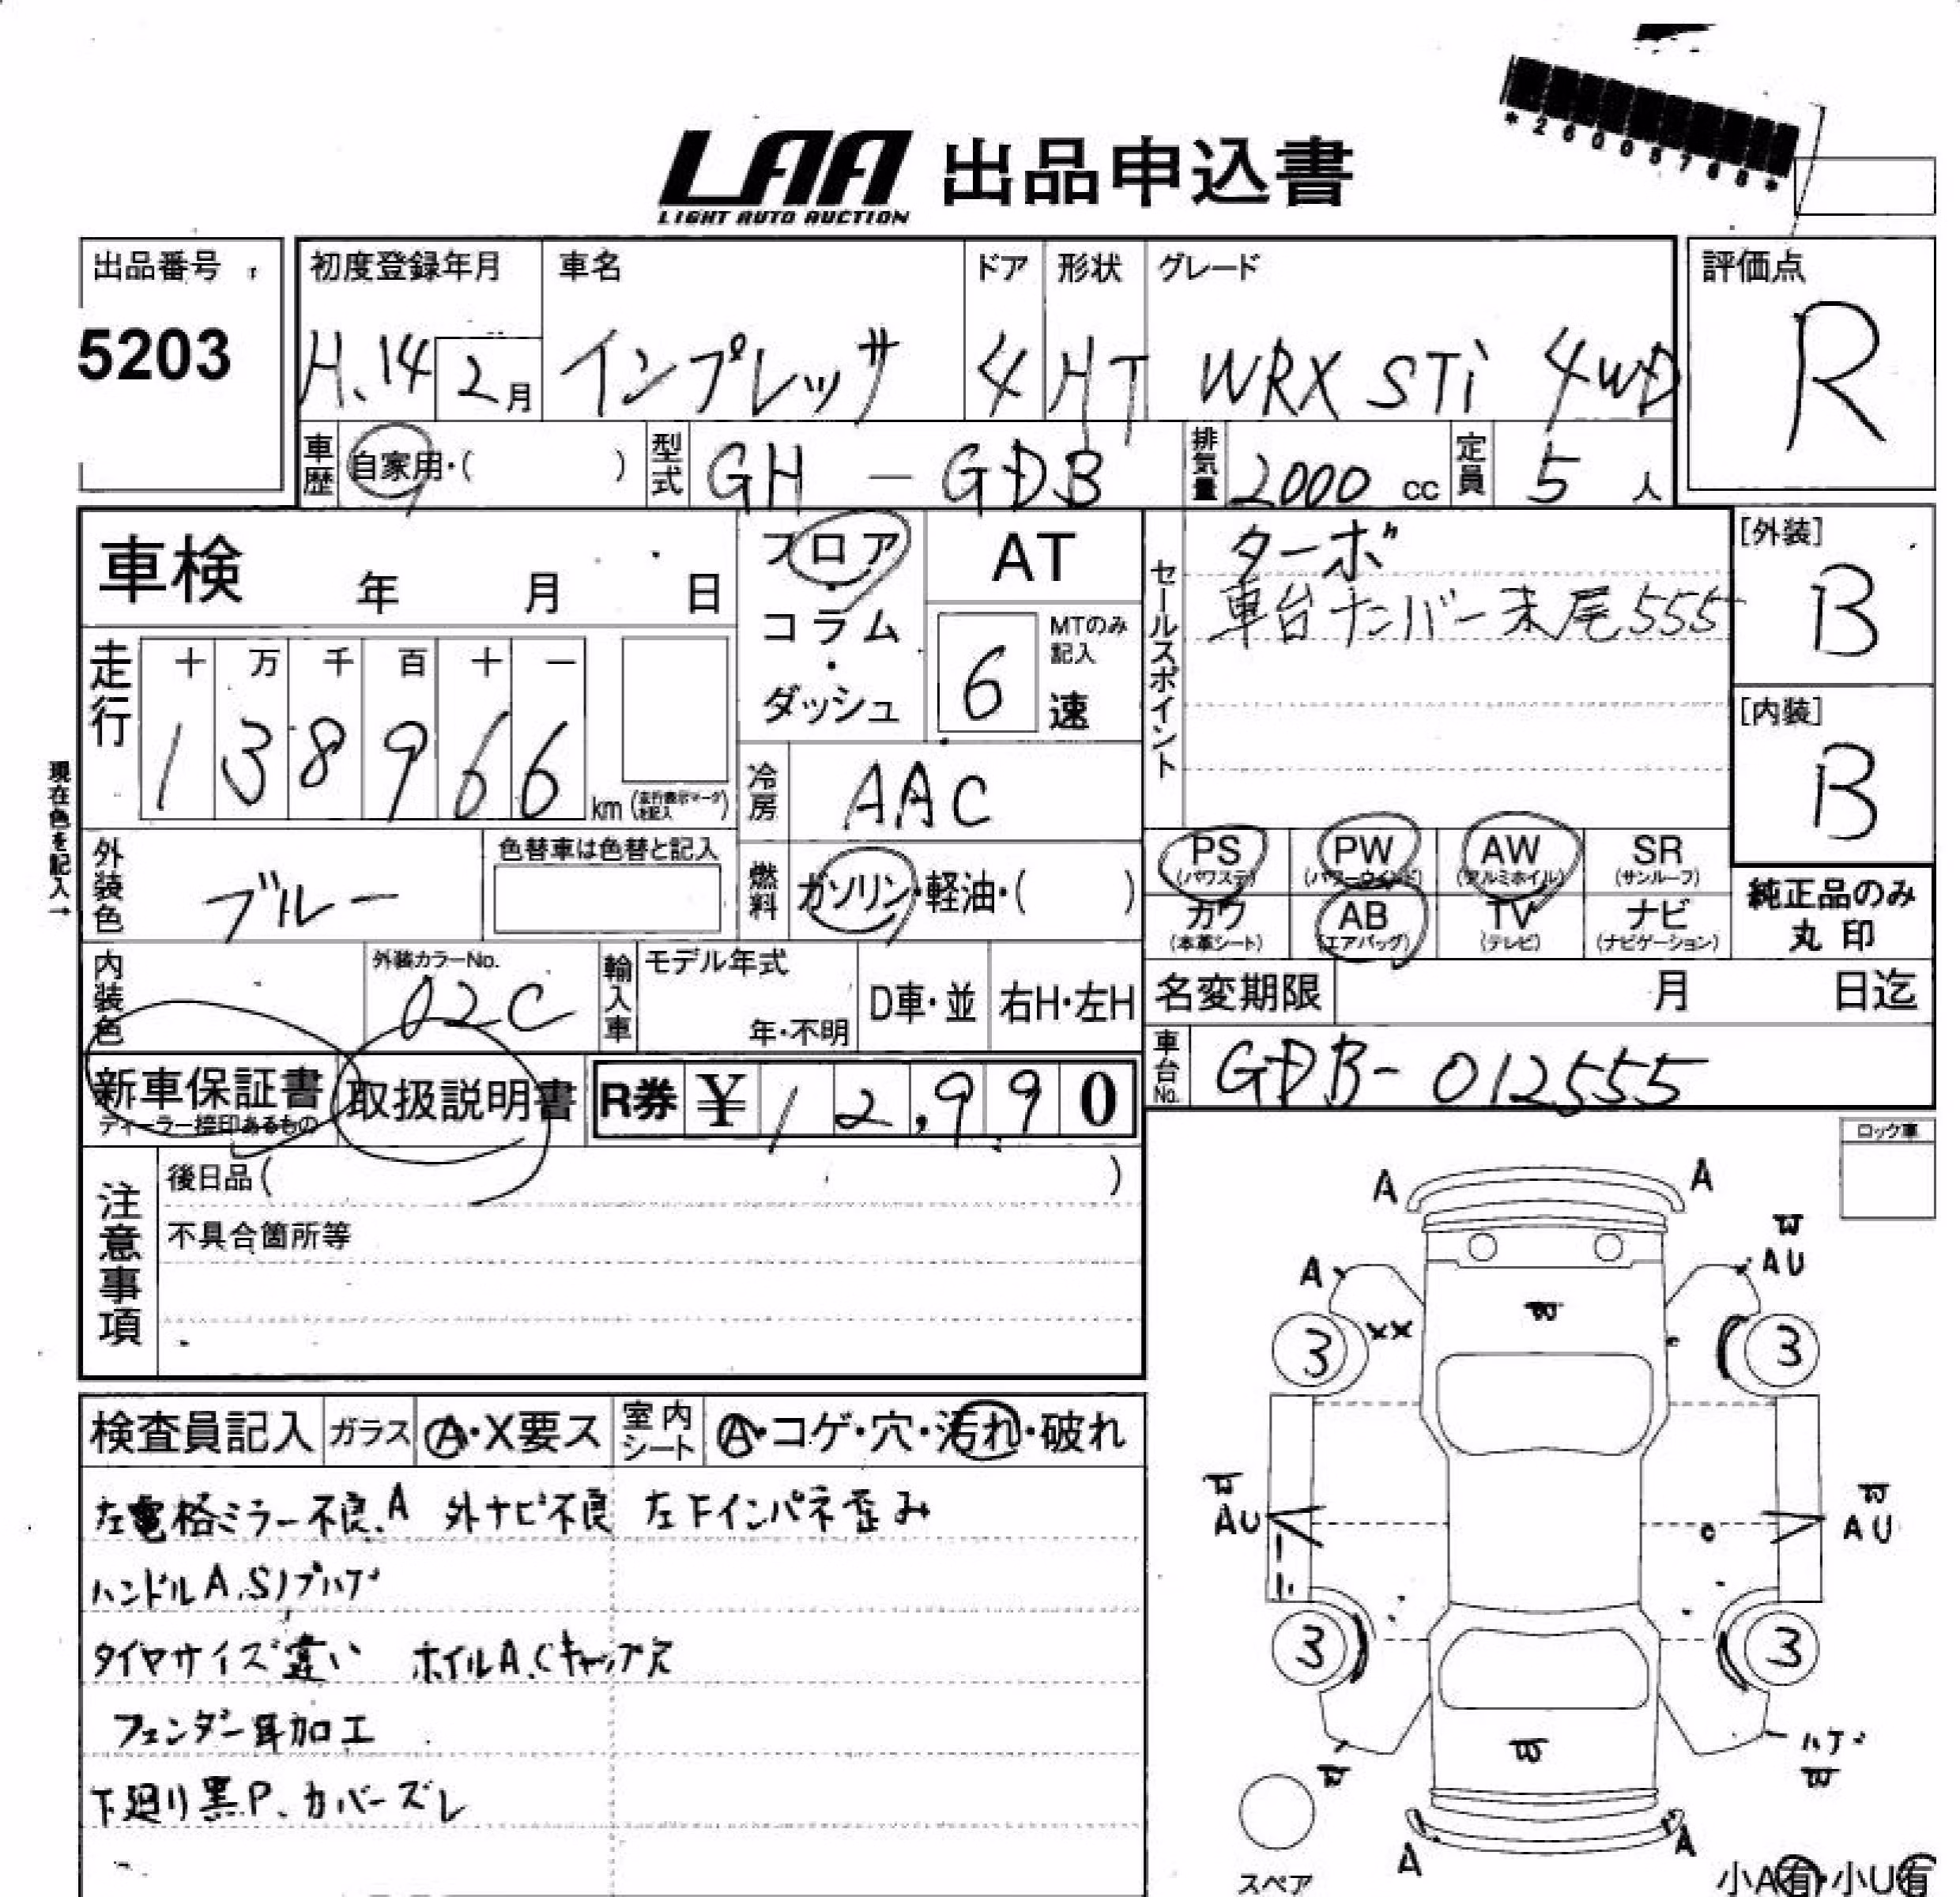 *26005768*
LAA 出品申込書
LIGHT AUTO AUCTION
出品番号
5203
初度登録年月
H.14 2月
車名
インプレッサ
ドア
4
形状
HT
グレード
WRX STi 4WD
評価点
R
車歴
自家用・( )
型式
GH - GDB
排気量
2000 cc
定員
5 人
車検 年 月 日
フロア・コラム・ダッシュ
AT
MTのみ記入
6 速
セールスポイント
ターボ
車台ナンバー末尾555
[外装]
B
[内装]
B
現在色を記入→
走行
十 万 千 百 十 一
1 3 8 9 6 6
km (走行表示マークを記入)
冷房
AAC
外装色
ブルー
色替車は色替と記入
燃料
ガソリン・軽油・( )
PS (パワステ)
PW (パワーウインド)
AW (アルミホイル)
SR (サンルーフ)
カワ (本革シート)
AB (エアバッグ)
TV (テレビ)
ナビ (ナビゲーション)
純正品のみ
丸印
内装色
外装カラーNo.
02C
輸入車
モデル年式
年・不明
D車・並
右H・左H
名変期限 月 日迄
新車保証書
ディーラー捺印あるもの
取扱説明書
R券 ¥ 1 2,9 9 0
車台No.
GDB-012555
注意事項
後日品( )
不具合箇所等
ロック車
検査員記入
ガラス
A・X要ス
室内シート
A・コゲ・穴・汚れ・破れ
左電格ミラー不良.A 外ナビ不良 左下インパネ歪み
ハンドルA.Sノブハゲ
タイヤサイズ違い ホイルA.Cキャップ欠
フェンダー耳加工
下廻り黒P.カバーズレ
A A
W
A AU
W
XX
3 3
W W
AU AU
3 3
ハゲ
W W W
A A
スペア
小A有・小U有